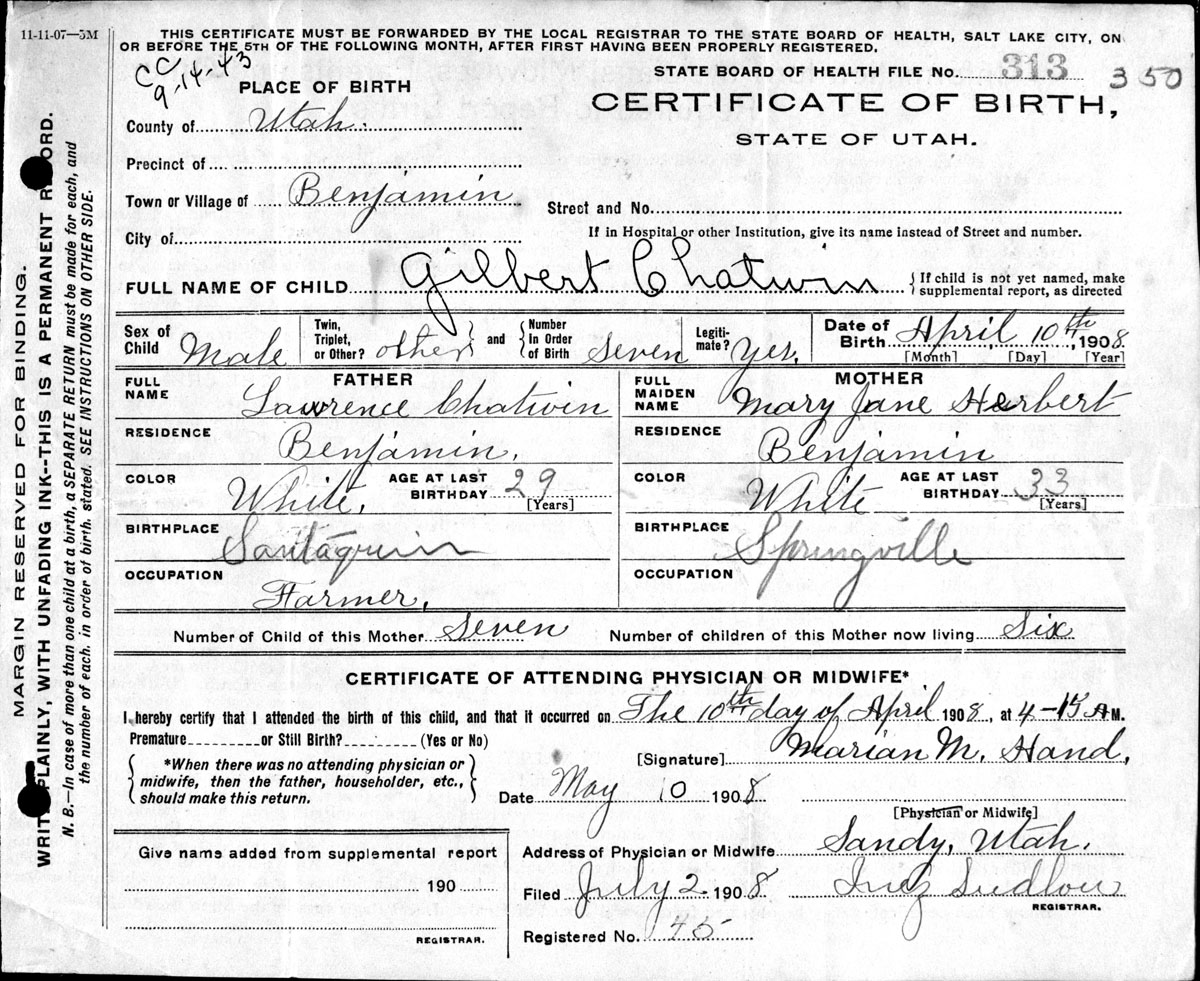 11-11-07—3M
THIS CERTIFICATE MUST BE FORWARDED BY THE LOCAL REGISTRAR TO THE STATE BOARD OF HEALTH, SALT LAKE CITY, ON
OR BEFORE THE 5TH OF THE FOLLOWING MONTH, AFTER FIRST HAVING BEEN PROPERLY REGISTERED.
CC
9-14-43
STATE BOARD OF HEALTH FILE No. 313 350
PLACE OF BIRTH
CERTIFICATE OF BIRTH,
STATE OF UTAH.
County of Utah.
Precinct of
Town or Village of Benjamin
Street and No.
City of
If in Hospital or other Institution, give its name instead of Street and number.
FULL NAME OF CHILD Gilbert Chatwin { If child is not yet named, make
supplemental report, as directed
Sex of Child Male
Twin, Triplet, or Other? other } and { Number In Order of Birth Seven
Legitimate? Yes.
Date of Birth April 10th, 1908
[Month] [Day] [Year]
FATHER
FULL NAME Lawrence Chatwin
RESIDENCE Benjamin.
COLOR White. AGE AT LAST BIRTHDAY 29 [Years]
BIRTHPLACE Santaquin
OCCUPATION Farmer.
MOTHER
FULL MAIDEN NAME Mary Jane Herbert
RESIDENCE Benjamin
COLOR White AGE AT LAST BIRTHDAY 33 [Years]
BIRTHPLACE Springville
OCCUPATION
Number of Child of this Mother Seven Number of children of this Mother now living Six
CERTIFICATE OF ATTENDING PHYSICIAN OR MIDWIFE*
I hereby certify that I attended the birth of this child, and that it occurred on The 10th day of April 1908, at 4-15 A M.
Premature or Still Birth? (Yes or No)
[Signature] Marian M. Hand,
{ *When there was no attending physician or
midwife, then the father, householder, etc.,
should make this return. }
Date May 10 1908
[Physician or Midwife]
Address of Physician or Midwife Sandy, Utah.
Give name added from supplemental report
190
REGISTRAR.
Filed July 2 1908 Inez Ludlow
REGISTRAR.
Registered No. 45
MARGIN RESERVED FOR BINDING.
WRITE PLAINLY, WITH UNFADING INK--THIS IS A PERMANENT RECORD.
N. B.—In case of more than one child at a birth, a SEPARATE RETURN must be made for each, and
the number of each, in order of birth, stated. SEE INSTRUCTIONS ON OTHER SIDE.